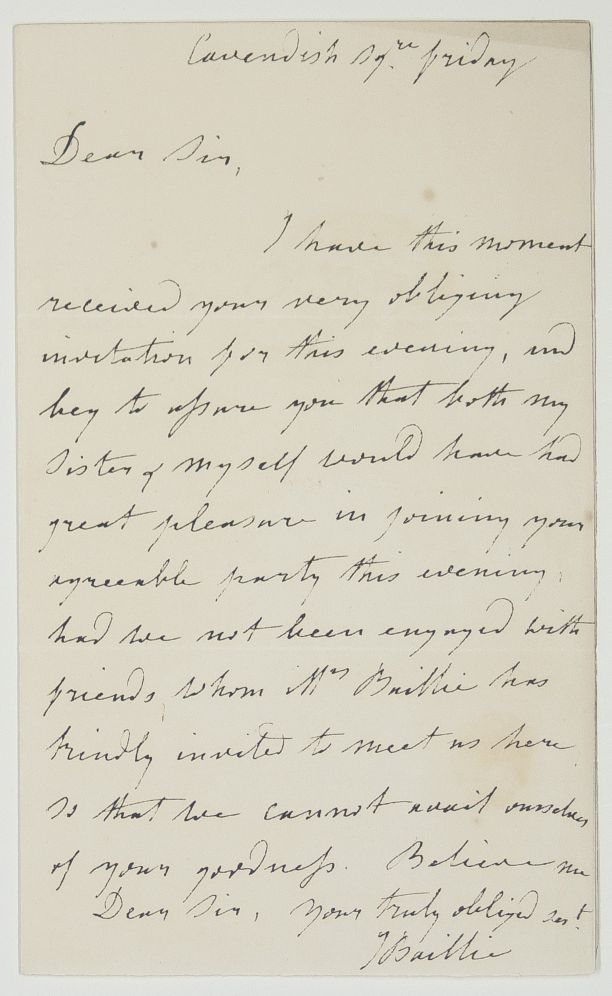 Cavendish Sqre friday
Dear Sir,
I have this moment
received your very obliging
invitation for this evening, and
beg to assure you that both my
Sister & myself would have had
great pleasure in joining your
agreeable party this evening,
had we not been engaged with
friends whom Mrs Baillie has
kindly invited to meet us here
so that we cannot avail ourselves
of your goodness. Believe me
Dear Sir, your truly obliged sert.
JBaillie